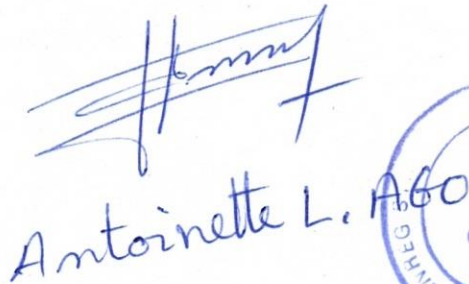 Antoinette L. AGO
NHEG